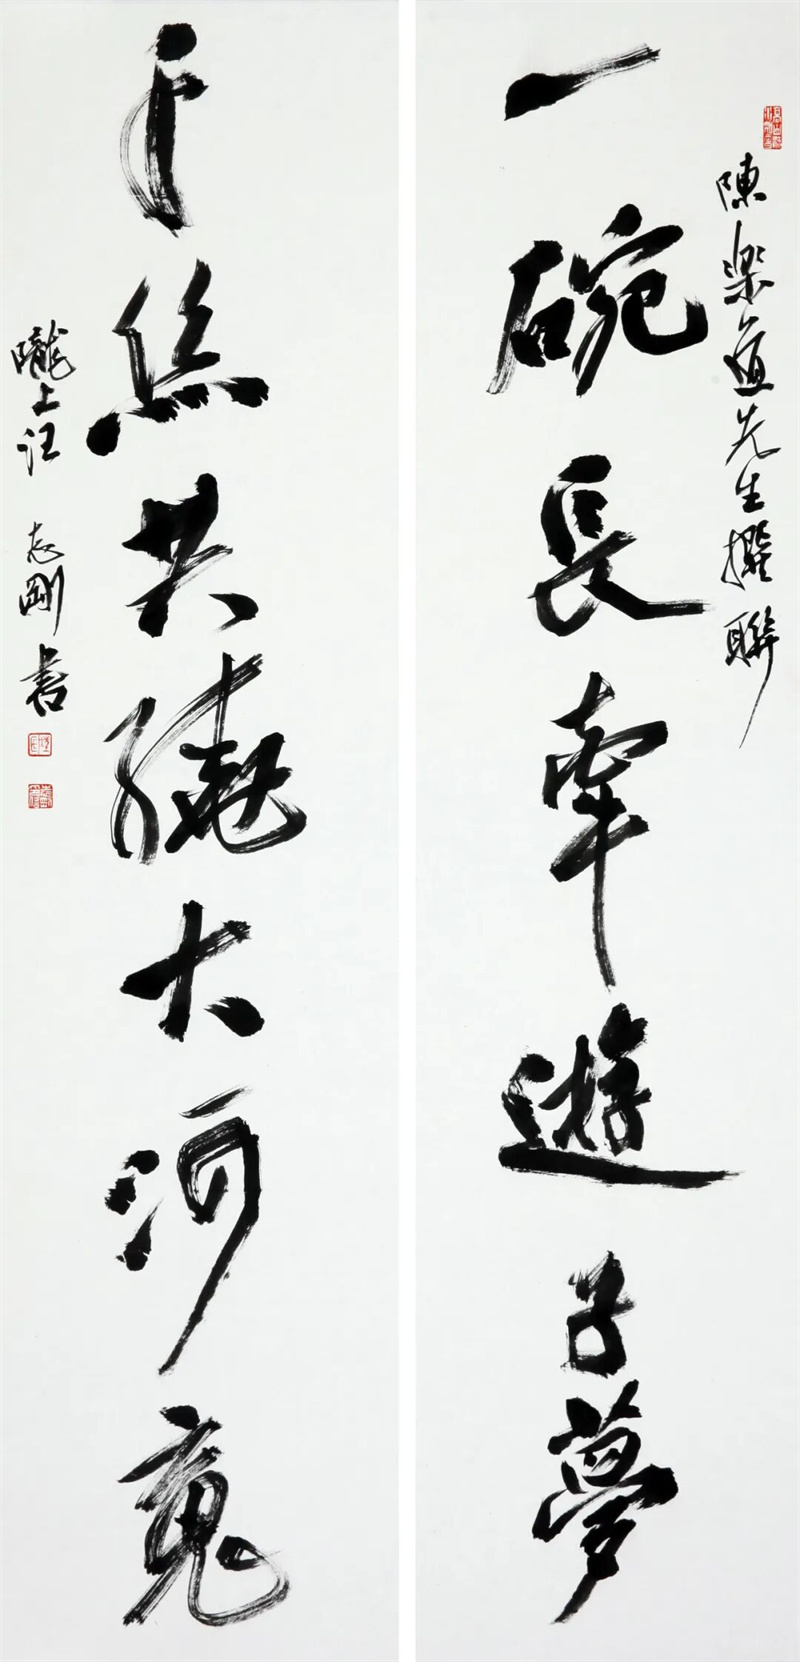 陳樂道先生撰聯
一碗長牽遊子夢
千絲共繞大河魂
隴上汪志剛書